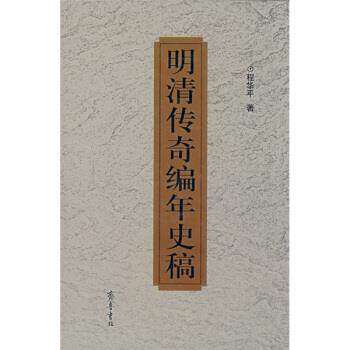 明清传奇编年史稿
⊙程华平 著
齐鲁书社